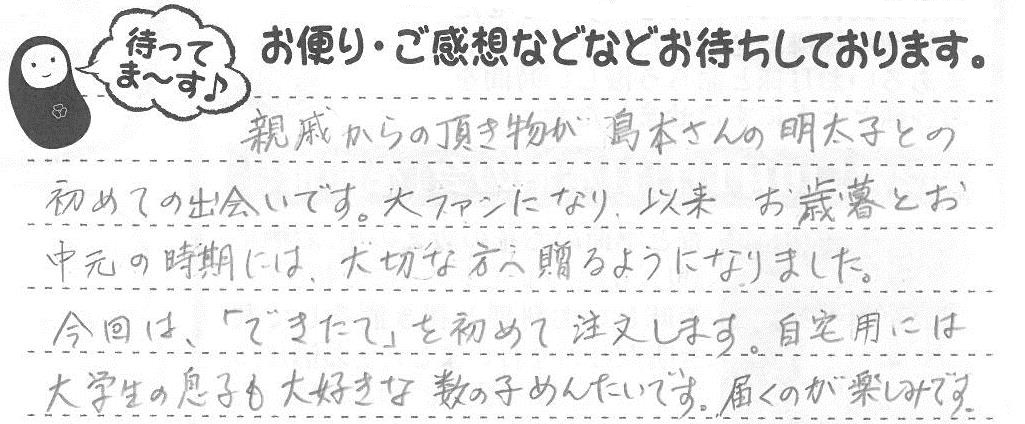 待って
ま〜す♪
お便り・ご感想などなどお待ちしております。
親戚からの頂き物が 島本さんの明太子との
初めての出会いです。大ファンになり、以来 お歳暮とお
中元の時期には、大切な方へ贈るようになりました。
今回は、「できたて」を初めて注文します。自宅用には
大学生の息子も大好きな数の子めんたいです。届くのが楽しみです。